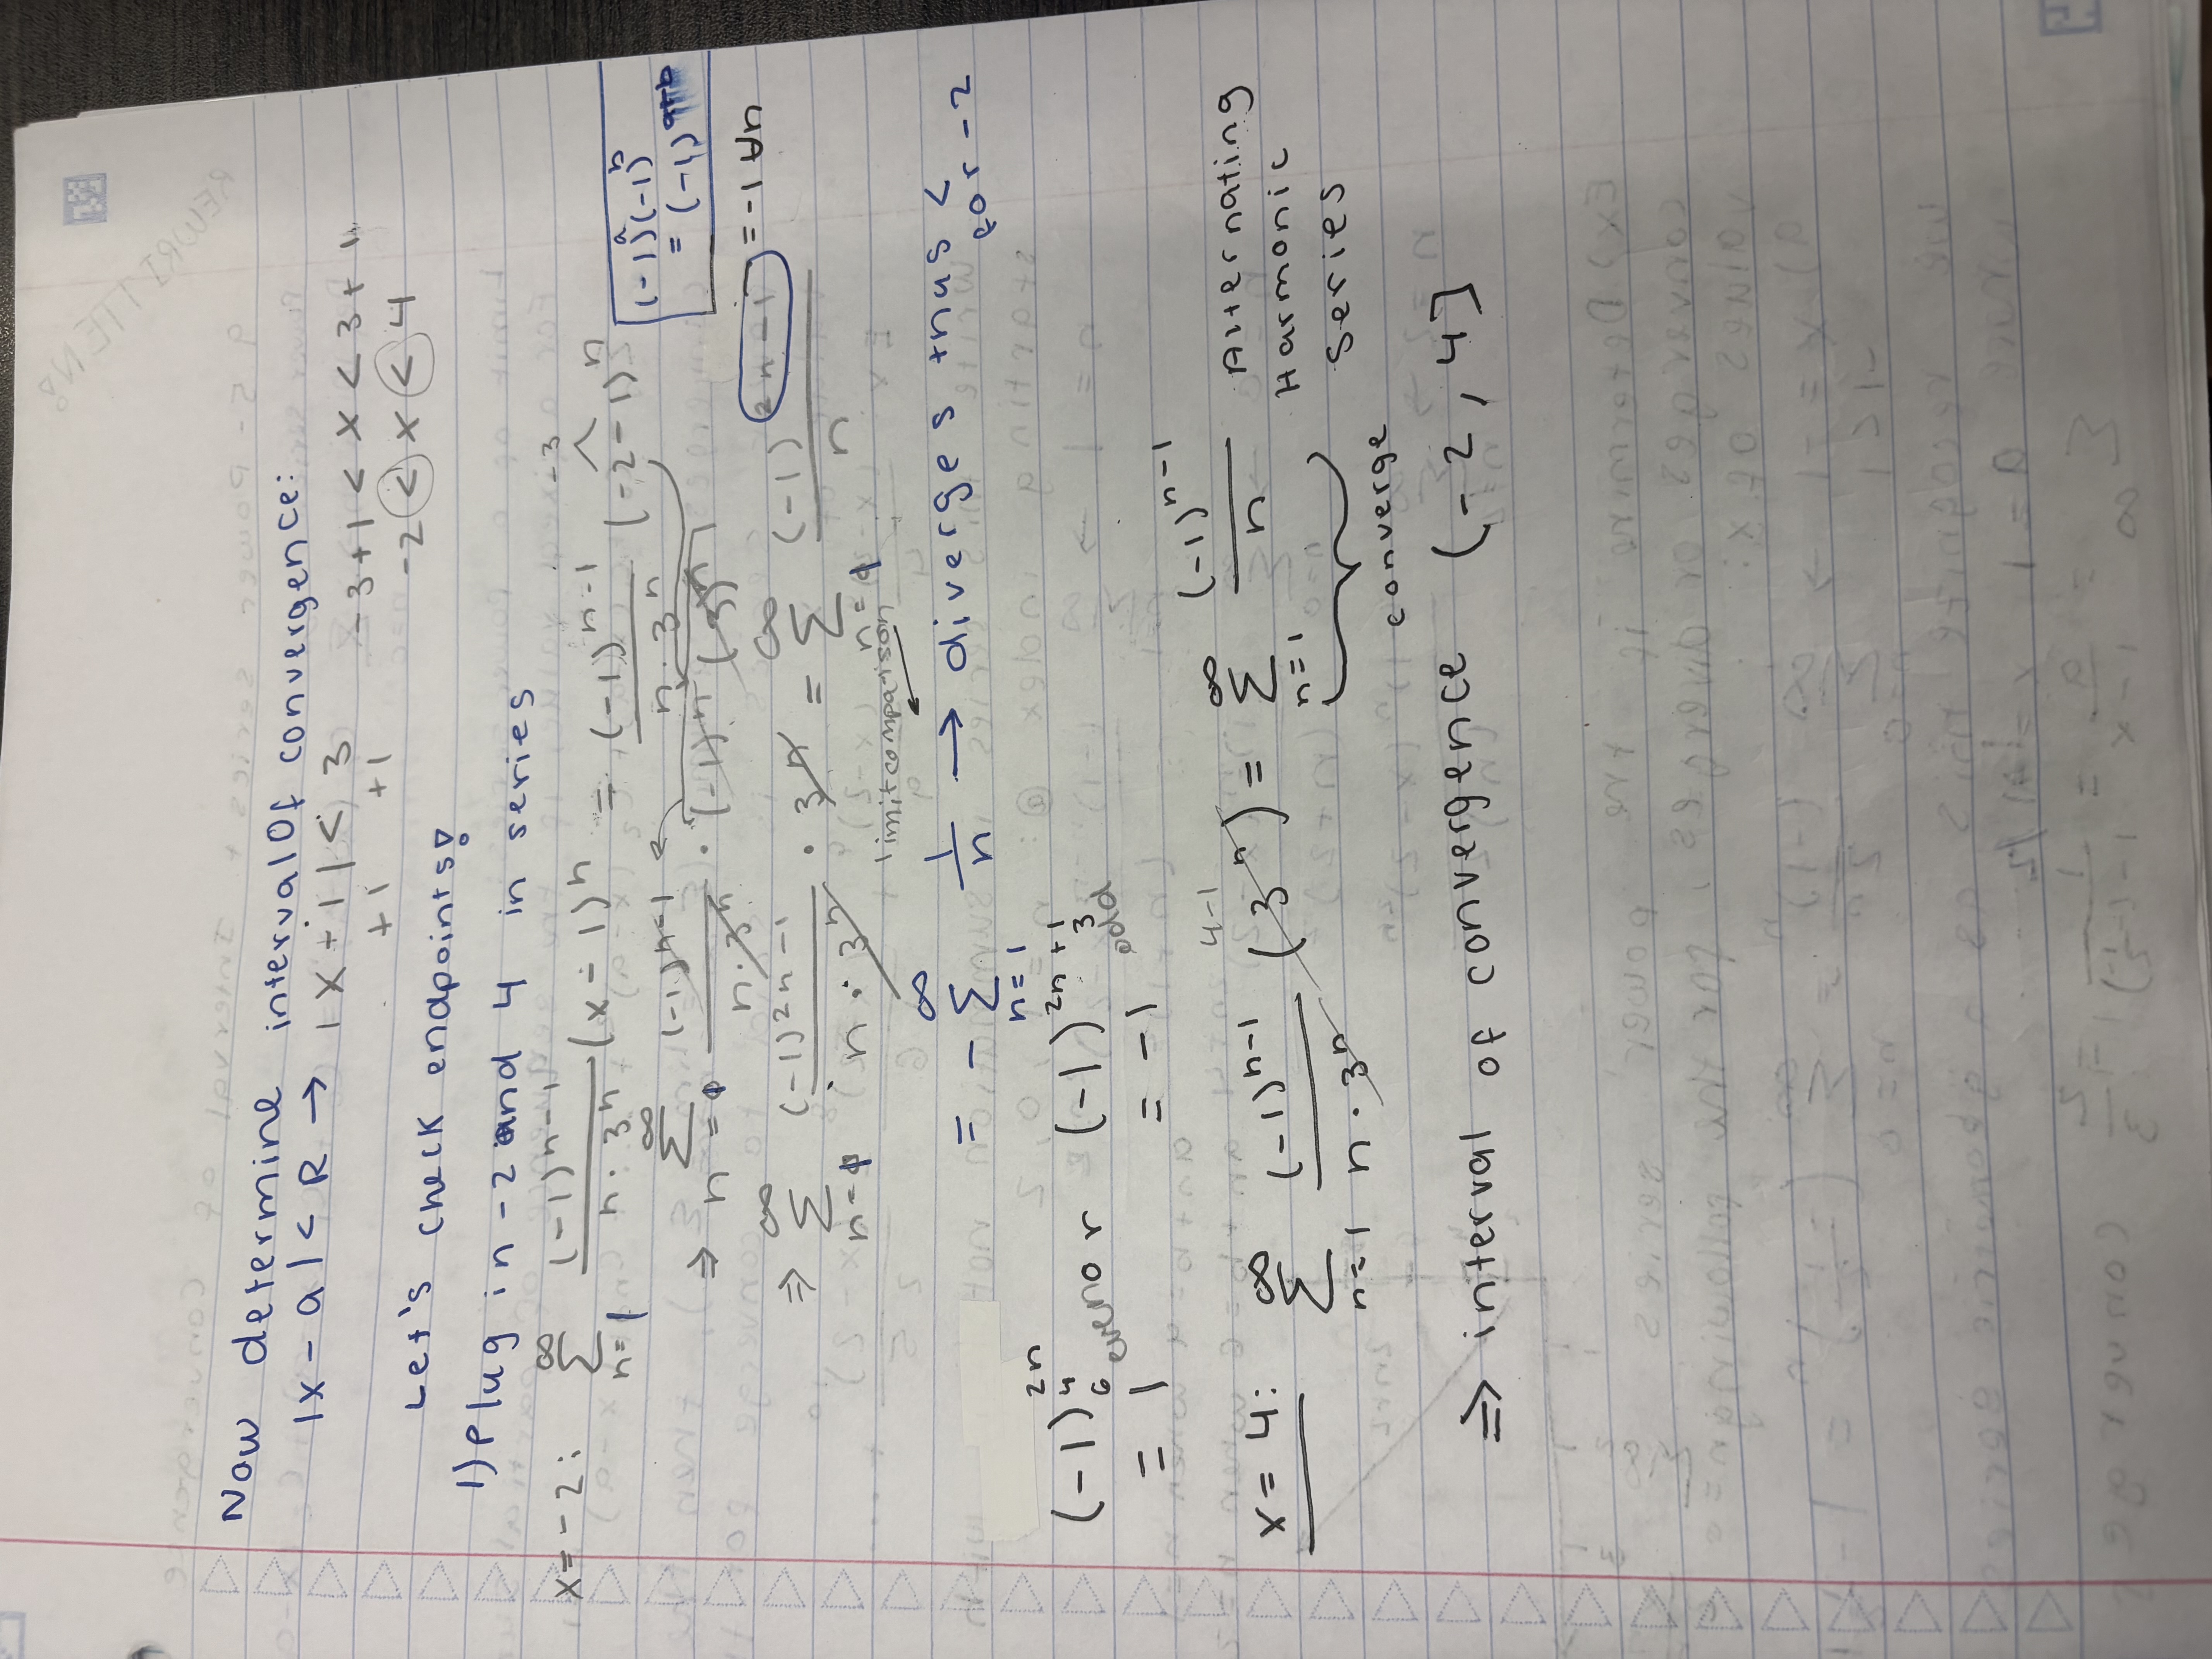 REWRITTEN
Now determine interval of convergence:
|x-a| < R → |x+1| < 3   -3+1 < x < 3+1
+1   +1   -2 < x < 4
Let's check endpoints!
1) Plug in -2 and 4 in series
x=-2: ∞Σn=1 (-1)^n-1 / n·3^n (x-1)^n = (-1)^n-1 / n·3^n (-2-1)^n
(-1)^n(-1)^n
= (-1)
⇒ ∞Σn= (-1)^n-1 / n·3^n · (-1)^n (3)^n
⇒ ∞Σn= (-1)^2n-1 / n·3^n · 3^n = ∞Σn= (-1)^2n-1 / n   = -1 ∀n
limit comparison
= - ∞Σn=1 1/n → diverges thus < for -2
(-1)^2n 4 6 even or (-1)^2n+1 3 odd
= 1   = -1
4-1
x=4: ∞Σn=1 (-1)^n-1 / n·3^n (3^n) = ∞Σn=1 (-1)^n-1 / n   Alternating
Harmonic
Series
converge
⇒ interval of convergence (-2, 4]